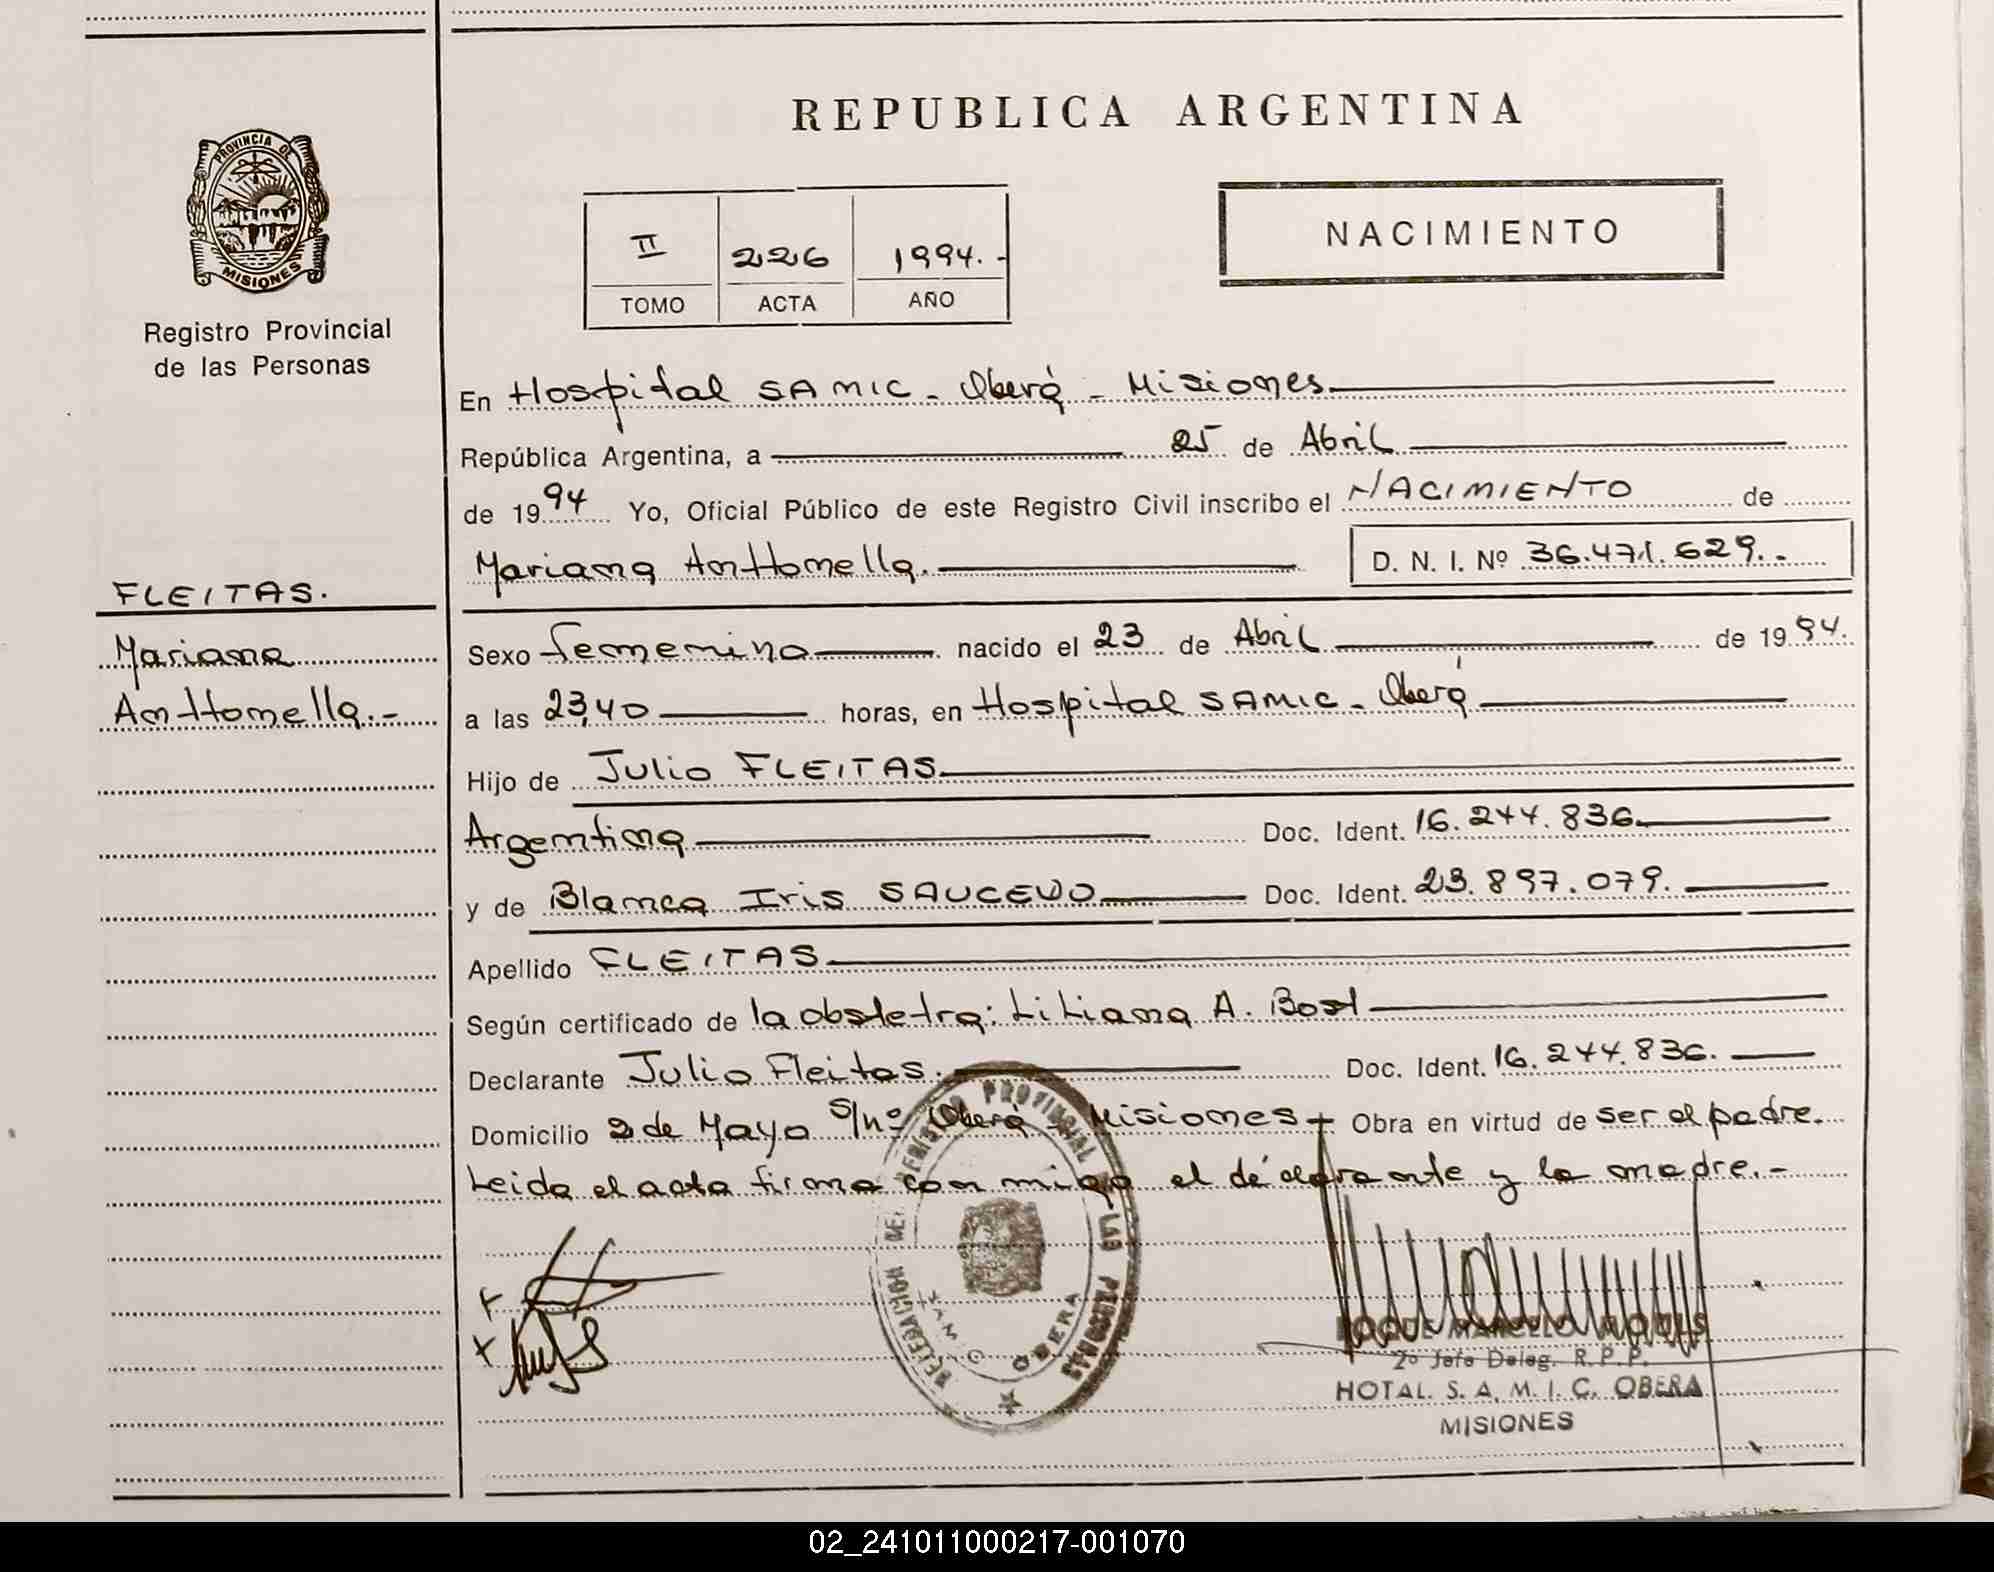 PROVINCIA DE
MISIONES
Registro Provincial
de las Personas
FLEITAS.
Mariana
Anttonella.-
REPUBLICA ARGENTINA
II 226 1994.-
TOMO ACTA AÑO
NACIMIENTO
En Hospital SAMIC - Oberá - Misiones
República Argentina, a 25 de Abril
de 1994 Yo, Oficial Público de este Registro Civil inscribo el NACIMIENTO de
Mariana Anttonella. D. N. I. Nº 36.471.629.-
Sexo femenino nacido el 23 de Abril de 1994.
a las 23,40 horas, en Hospital SAMIC - Oberá
Hijo de Julio FLEITAS
Argentina Doc. Ident. 16.244.836
y de Blanca Iris SAUCEDO Doc. Ident. 23.897.079.
Apellido FLEITAS
Según certificado de la obstetra: Liliana A. Bost
Declarante Julio Fleitas. Doc. Ident. 16.244.836.
Domicilio 2 de Mayo S/nº Oberá - Misiones Obra en virtud de ser el padre.
Leida el acta firma con migo el declarante y la madre.-
DELEGACION DEL REGISTRO PROVINCIAL DE LAS PERSONAS
OBERA
2º Jefe Deleg. R.P.P.
HOTAL. S. A. M. I. C. OBERA
MISIONES
02_241011000217-001070